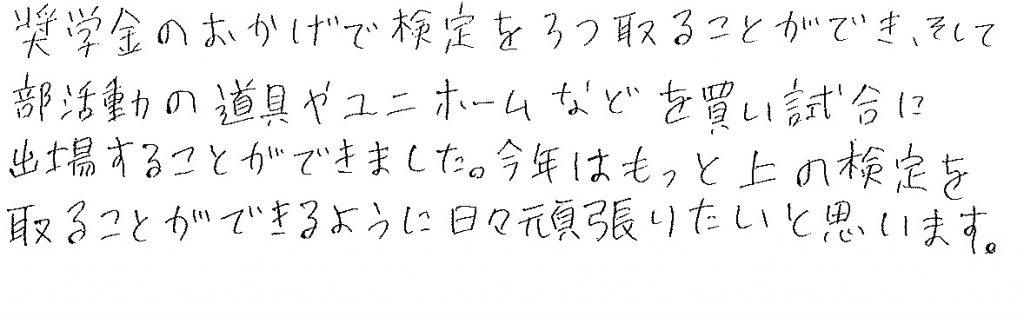 奨学金のおかげで検定を3つ取ることができ、そして
部活動の道具やユニホームなどを買い試合に
出場することができました。今年はもっと上の検定を
取ることができるように日々頑張りたいと思います。